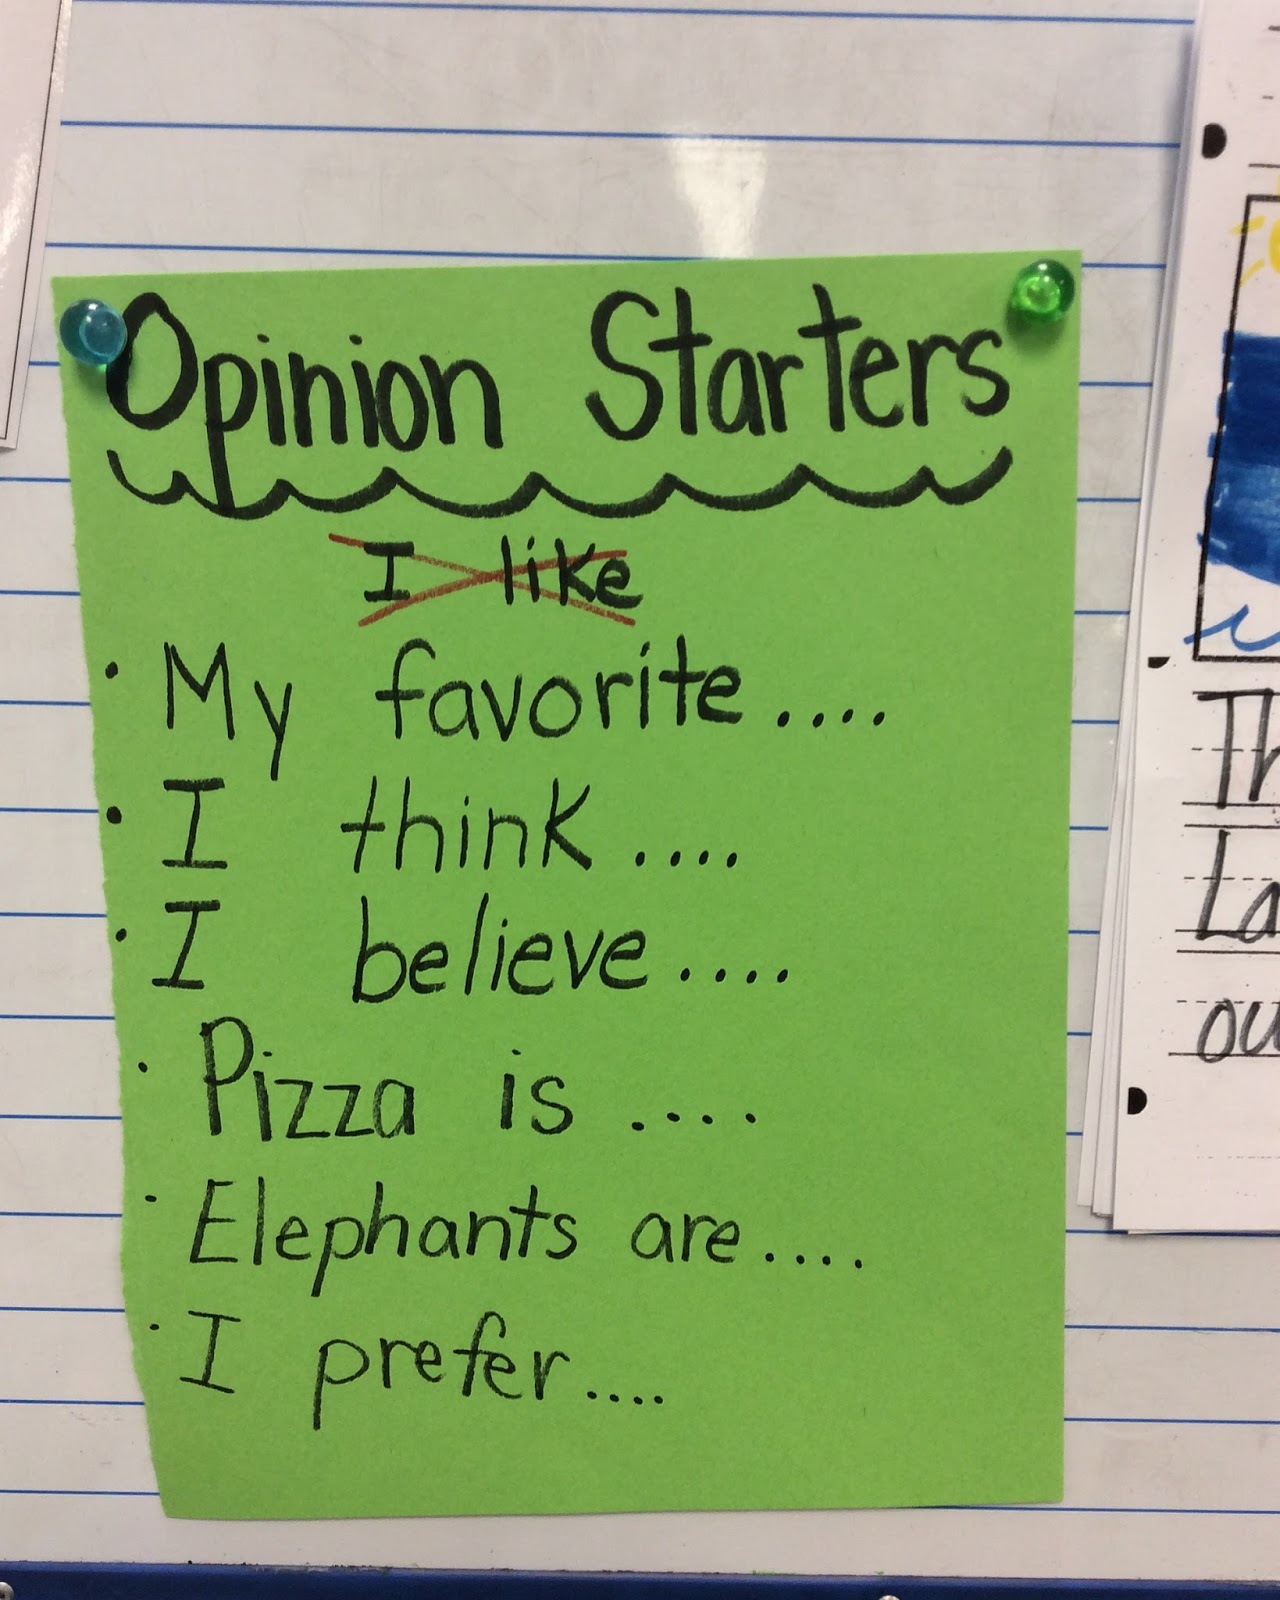 Opinion Starters
I like
· My favorite....
· I think....
· I believe....
· Pizza is ....
· Elephants are....
· I prefer....
Th
La
ou